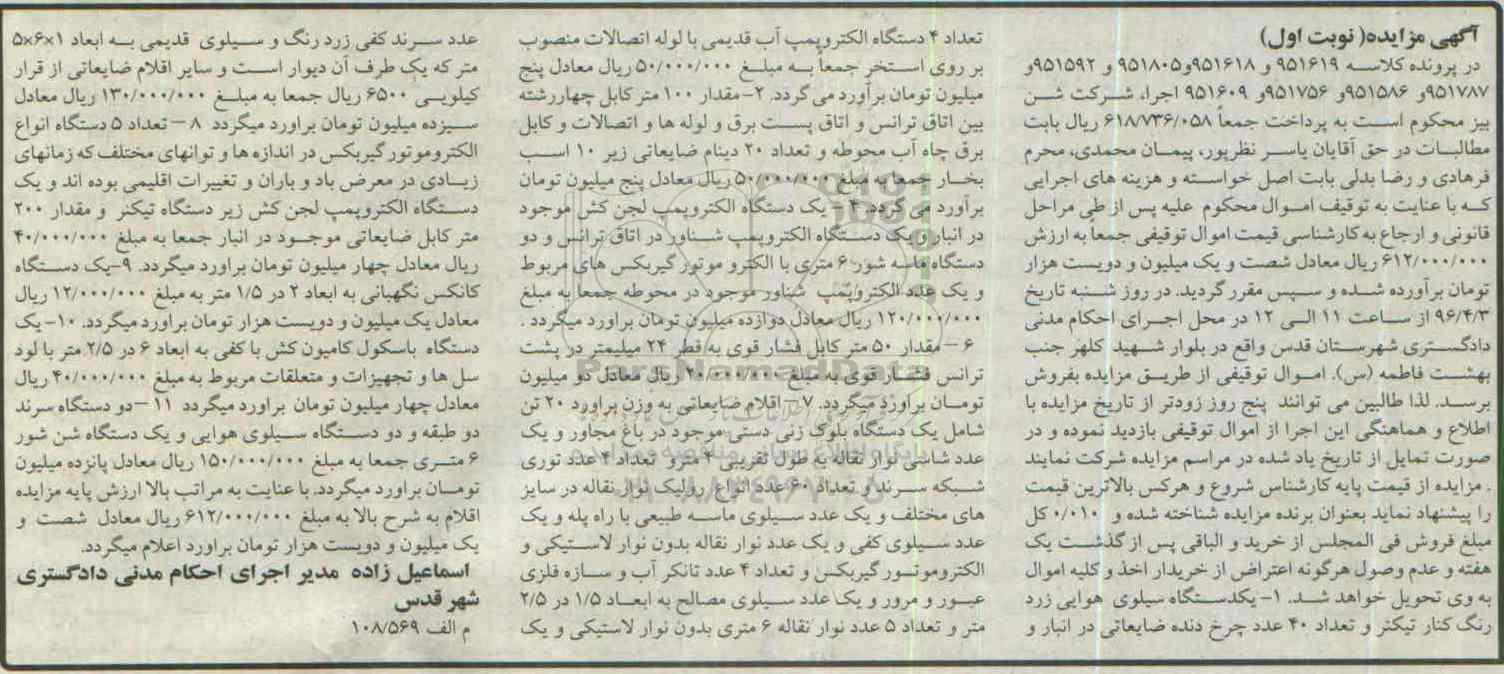 آگهی مزایده( نوبت اول)
در پرونده کلاسه ۹۵۱۶۱۹ و ۹۵۱۶۱۸و۹۵۱۸۰۵ و ۹۵۱۵۹۲و
۹۵۱۷۸۷و ۹۵۱۵۸۶و ۹۵۱۷۵۶و ۹۵۱۶۰۹ اجرا، شرکت شن
بیز محکوم است به پرداخت جمعاً ۶۱۸/۷۳۶/۰۵۸ ریال بابت
مطالبات در حق آقایان یاسر نظرپور، پیمان محمدی، محرم
فرهادی و رضا بدلی بابت اصل خواسته و هزینه های اجرایی
که با عنایت به توقیف اموال محکوم علیه پس از طی مراحل
قانونی و ارجاع به کارشناسی قیمت اموال توقیفی جمعا به ارزش
۶۱۲/۰۰۰/۰۰۰ ریال معادل شصت و یک میلیون و دویست هزار
تومان برآورده شده و سپس مقرر گردید. در روز شنبه تاریخ
۹۶/۴/۳ از ساعت ۱۱ الی ۱۲ در محل اجرای احکام مدنی
دادگستری شهرستان قدس واقع در بلوار شهید کلهر جنب
بهشت فاطمه (س). اموال توقیفی از طریق مزایده بفروش
برسد. لذا طالبین می توانند پنج روز زودتر از تاریخ مزایده با
اطلاع و هماهنگی این اجرا از اموال توقیفی بازدید نموده و در
صورت تمایل از تاریخ یاد شده در مراسم مزایده شرکت نمایند
. مزایده از قیمت پایه کارشناس شروع و هرکس بالاترین قیمت
را پیشنهاد نماید بعنوان برنده مزایده شناخته شده و ۰/۰۱۰ کل
مبلغ فروش فی المجلس از خرید و الباقی پس از گذشت یک
هفته و عدم وصول هرگونه اعتراض از خریدار اخذ و کلیه اموال
به وی تحویل خواهد شد. ۱- یکدستگاه سیلوی هوایی زرد
رنگ کنار تیکنر و تعداد ۴۰ عدد چرخ دنده ضایعاتی در انبار و
تعداد ۴ دستگاه الکتروپمپ آب قدیمی با لوله اتصالات منصوب
بر روی استخر جمعاً به مبلغ ۵۰/۰۰۰/۰۰۰ ریال معادل پنج
میلیون تومان برآورد می گردد. ۲- مقدار ۱۰۰ متر کابل چهاررشته
بین اتاق ترانس و اتاق پست برق و لوله ها و اتصالات و کابل
برق چاه آب محوطه و تعداد ۲۰ دینام ضایعاتی زیر ۱۰ اسب
بخار جمعا به مبلغ ۵۰/۰۰۰/۰۰۰ ریال معادل پنج میلیون تومان
برآورد می گردد. ۴ – یک دستگاه الکتروپمپ لجن کش موجود
در انبار و یک دستگاه الکتروپمپ شناور در اتاق ترانس و دو
دستگاه ماسه شور ۶ متری با الکترو موتور گیربکس های مربوط
و یک عدد الکتروپمپ شناور موجود در محوطه جمعا به مبلغ
۱۲۰/۰۰۰/۰۰۰ ریال معادل دوازده میلیون تومان براورد میگردد .
۶ – مقدار ۵۰ متر کابل فشار قوی به قطر ۲۴ میلیمتر در پشت
ترانس فشار قوی به مبلغ ۲۰/۰۰۰/۰۰۰ ریال معادل دو میلیون
تومان براورد میگردد. ۷ – اقلام ضایعاتی به وزن براورد ۲۰ تن
شامل یک دستگاه بلوک زنی دستی موجود در باغ مجاور و یک
عدد شاسی نوار نقاله به طول تقریبی ۴ مترو تعداد ۴ عدد توری
شبکه سرند و تعداد ۶۰ عدد انواع رولیک نوار نقاله در سایز
های مختلف و یک عدد سیلوی ماسه طبیعی با راه پله و یک
عدد سیلوی کفی و یک عدد نوار نقاله بدون نوار لاستیکی و
الکتروموتور گیربکس و تعداد ۴ عدد تانکر آب و سازه فلزی
عبور و مرور و یک عدد سیلوی مصالح به ابعاد ۱/۵ در ۲/۵
متر و تعداد ۵ عدد نوار نقاله ۶ متری بدون نوار لاستیکی و یک
عدد سرند کفی زرد رنگ و سیلوی قدیمی به ابعاد ۱×۶×۵
متر که یک طرف آن دیوار است و سایر اقلام ضایعاتی از قرار
کیلویی ۶۵۰۰ ریال جمعا به مبلغ ۱۳۰/۰۰۰/۰۰۰ ریال معادل
سیزده میلیون تومان براورد میگردد ۸ – تعداد ۵ دستگاه انواع
الکتروموتور گیربکس در اندازه ها و توانهای مختلف که زمانهای
زیادی در معرض باد و باران و تغییرات اقلیمی بوده اند و یک
دستگاه الکتروپمپ لجن کش زیر دستگاه تیکنر و مقدار ۲۰۰
متر کابل ضایعاتی موجود در انبار جمعا به مبلغ ۴۰/۰۰۰/۰۰۰
ریال معادل چهار میلیون تومان براورد میگردد. ۹-یک دستگاه
کانکس نگهبانی به ابعاد ۲ در ۱/۵ متر به مبلغ ۱۲/۰۰۰/۰۰۰ ریال
معادل یک میلیون و دویست هزار تومان براورد میگردد. ۱۰- یک
دستگاه باسکول کامیون کش با کفی به ابعاد ۶ در ۲/۵ متر با لود
سل ها و تجهیزات و متعلقات مربوط به مبلغ ۴۰/۰۰۰/۰۰۰ ریال
معادل چهار میلیون تومان براورد میگردد ۱۱ –دو دستگاه سرند
دو طبقه و دو دستگاه سیلوی هوایی و یک دستگاه شن شور
۶ متری جمعا به مبلغ ۱۵۰/۰۰۰/۰۰۰ ریال معادل پانزده میلیون
تومان براورد میگردد. با عنایت به مراتب بالا ارزش پایه مزایده
اقلام به شرح بالا به مبلغ ۶۱۲/۰۰۰/۰۰۰ ریال معادل شصت و
یک میلیون و دویست هزار تومان براورد اعلام میگردد.
اسماعیل زاده مدیر اجرای احکام مدنی دادگستری
شهر قدس
م الف ۱۰۸/۵۶۹
ParsNamadData